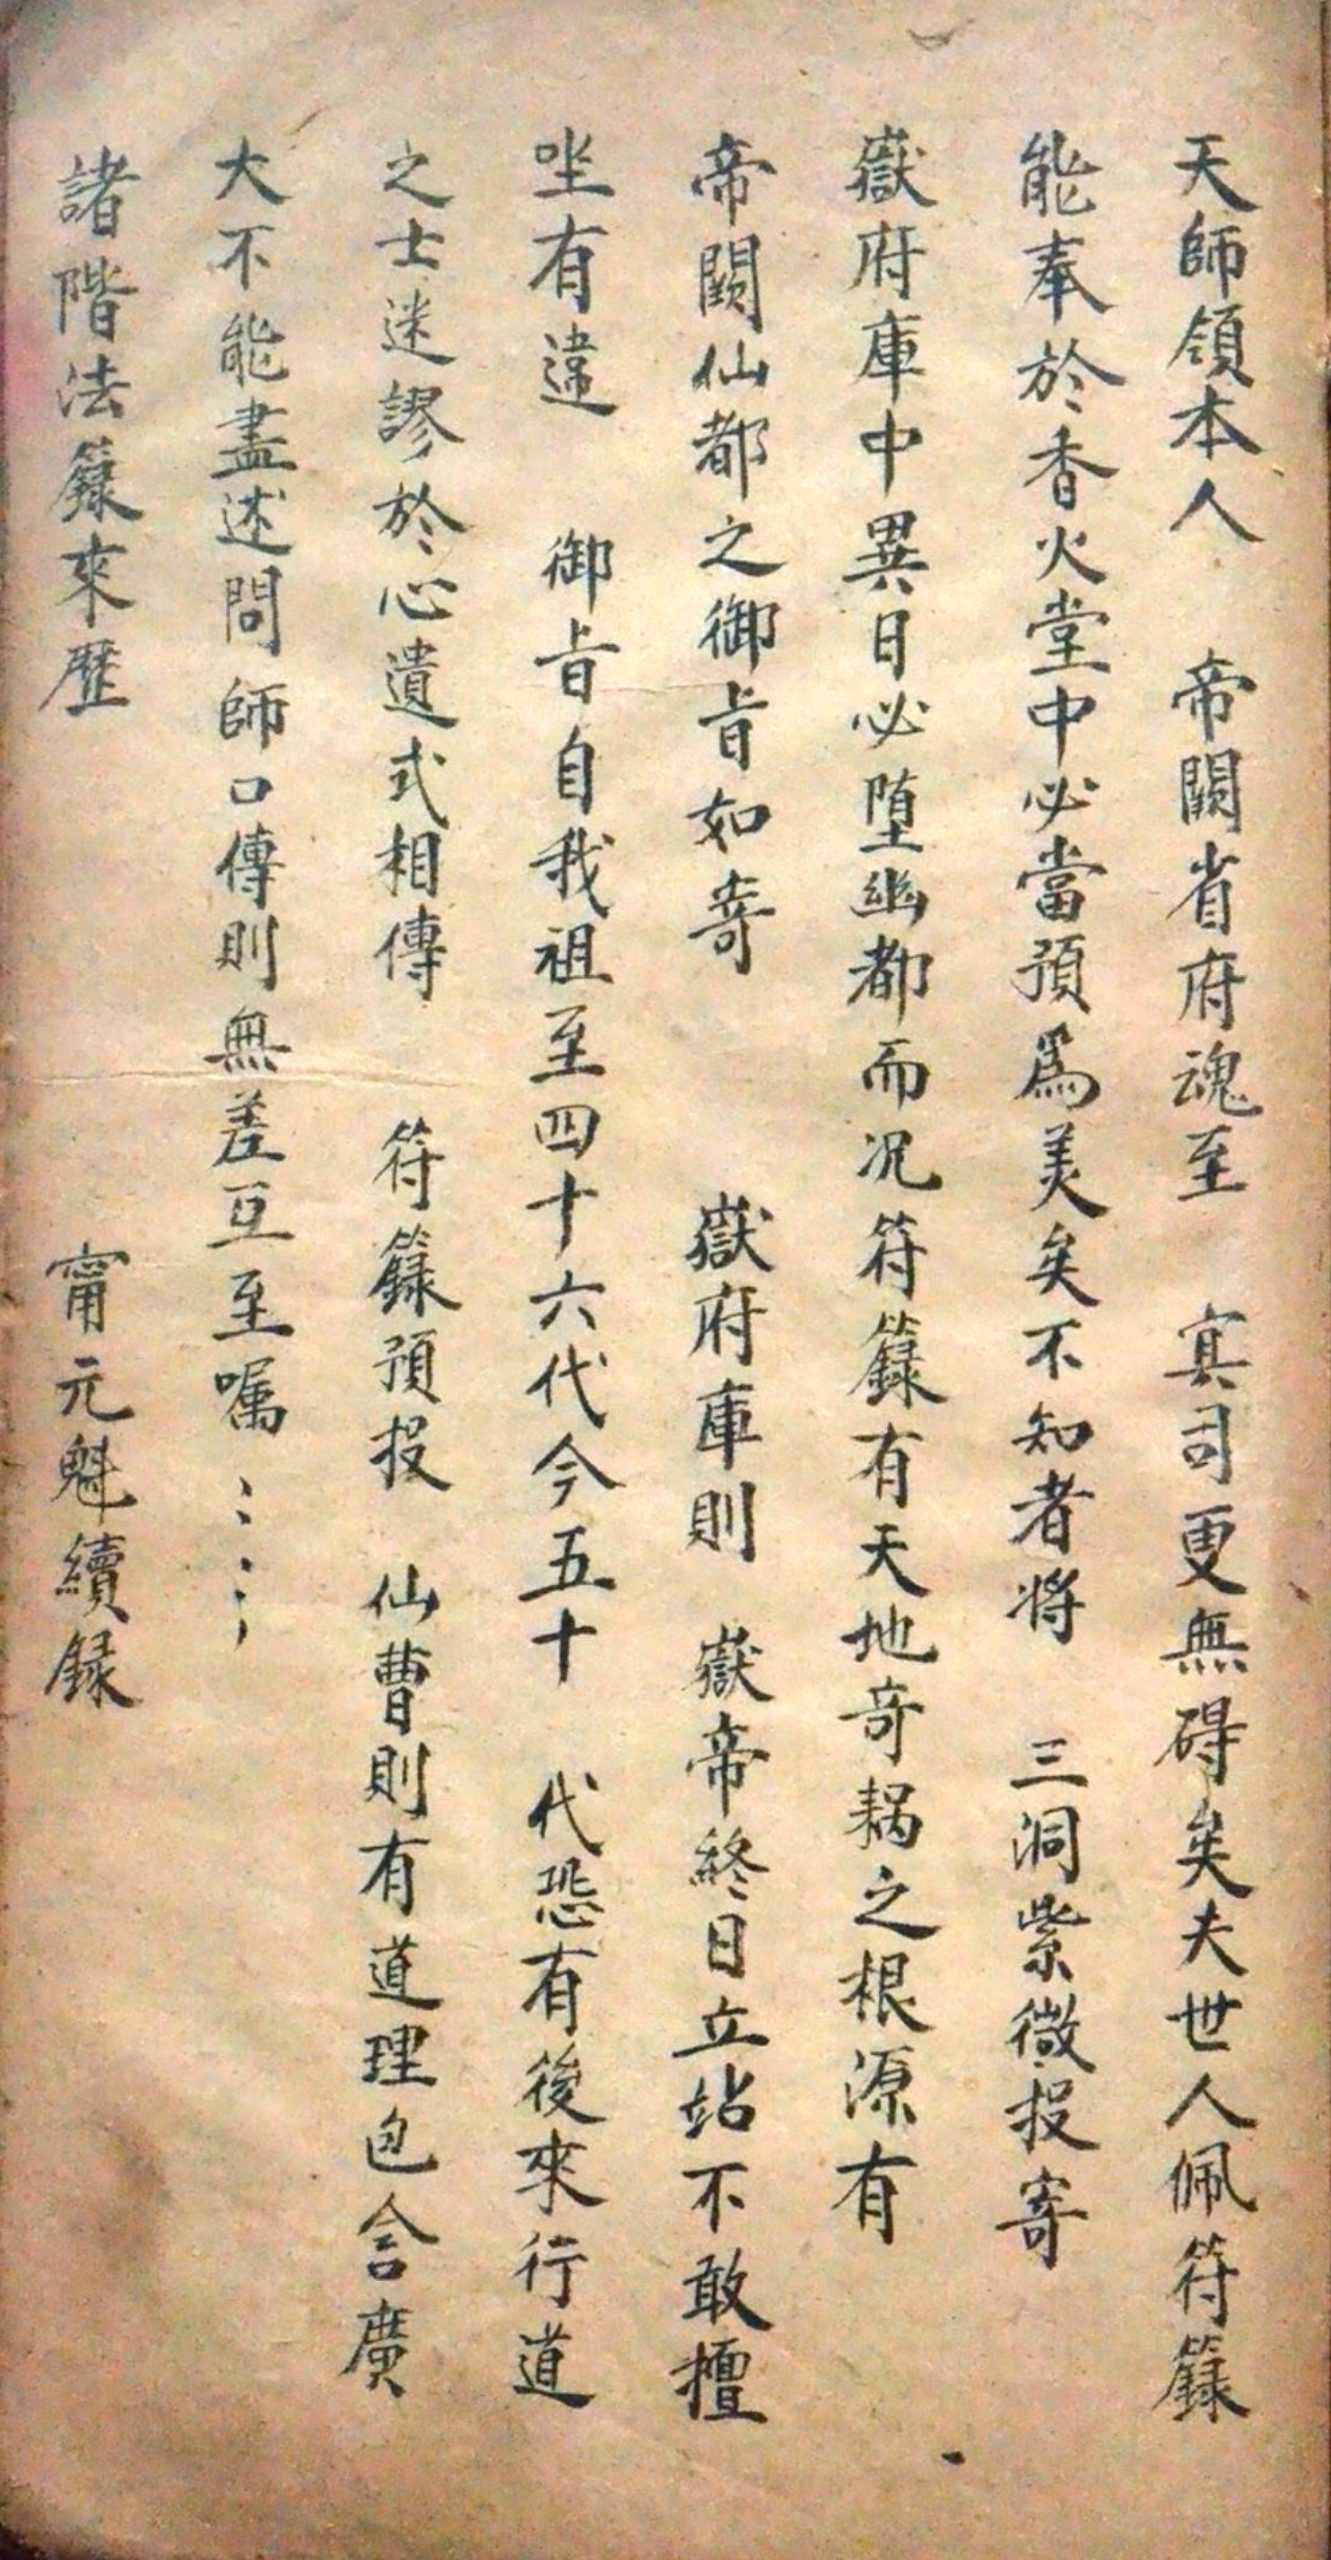 天師領本人　帝闕省府魂至　寘司更無碍矣夫世人佩符籙
能奉於香火堂中必當預爲美矣不知者将　三洞紫微投寄
嶽府庫中異日必堕幽都而况符籙有天地奇耦之根源有
帝闕仙都之御旨如寄　嶽府庫則　嶽帝終日立站不敢擅
坐有違　御旨自我祖至四十六代今五十　代恐有後來行道
之士迷謬於心遺式相傳　符籙預投　仙曹則有道理包含廣
大不能盡述問師口傳則無差互至嘱
諸階法籙來歷　甯元魁續録